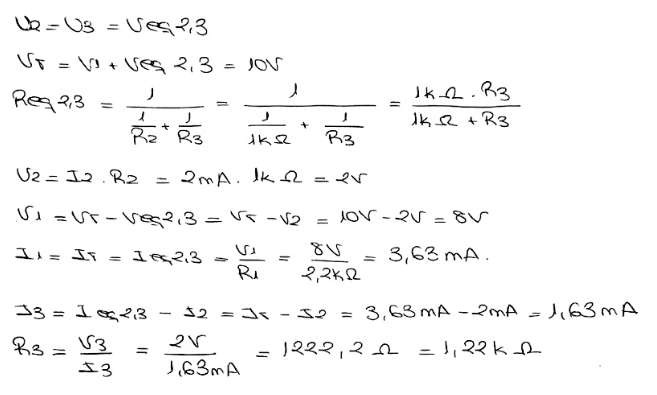 V2 = V3 = Veq2,3
VT = V1 + Veq 2,3 = 10V
Req2,3 = 1 / (1/R2 + 1/R3) = 1 / (1/1kΩ + 1/R3) = 1kΩ . R3 / 1kΩ + R3
V2 = I2 . R2 = 2mA . 1kΩ = 2V
V1 = VT - Veq2,3 = VT - V2 = 10V - 2V = 8V
I1 = IT = Ieq2,3 = V1/R1 = 8V/2,2kΩ = 3,63mA.
I3 = Ieq2,3 - I2 = IT - I2 = 3,63mA - 2mA = 1,63mA
R3 = V3/I3 = 2V/1,63mA = 1222,2Ω = 1,22kΩ